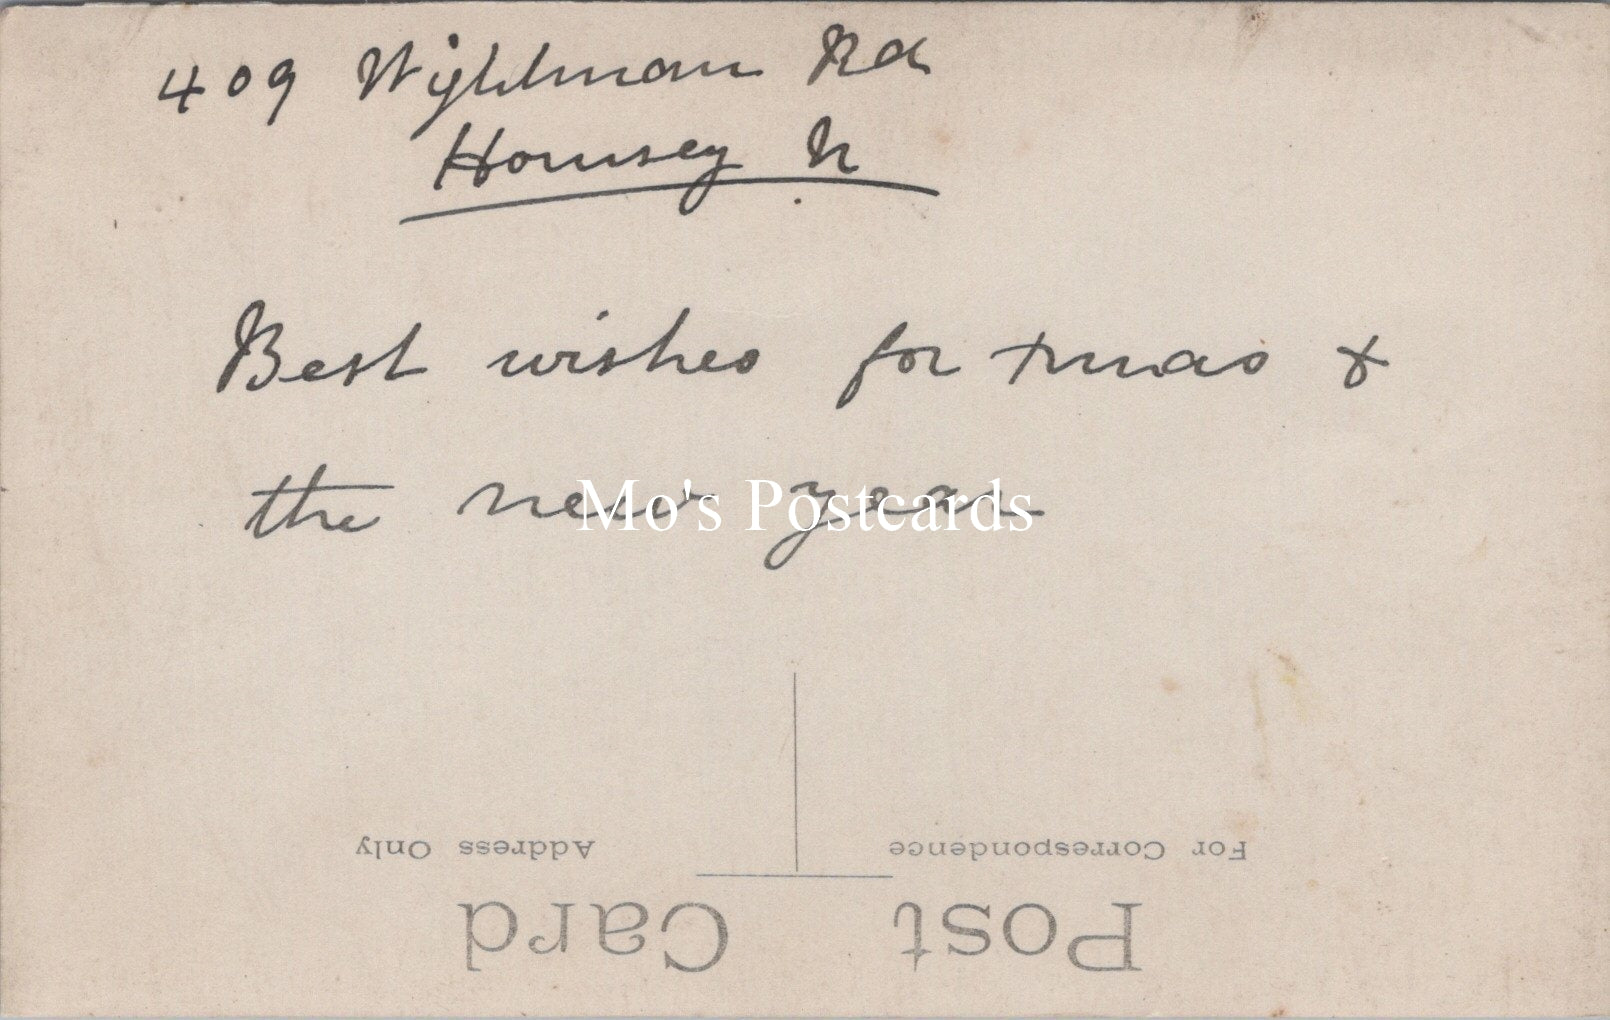 409 Wyldman Rd
Hornsey N
Best wishes for xmas &
the new year
Mo's Postcards
For Correspondence
Address Only
Post Card